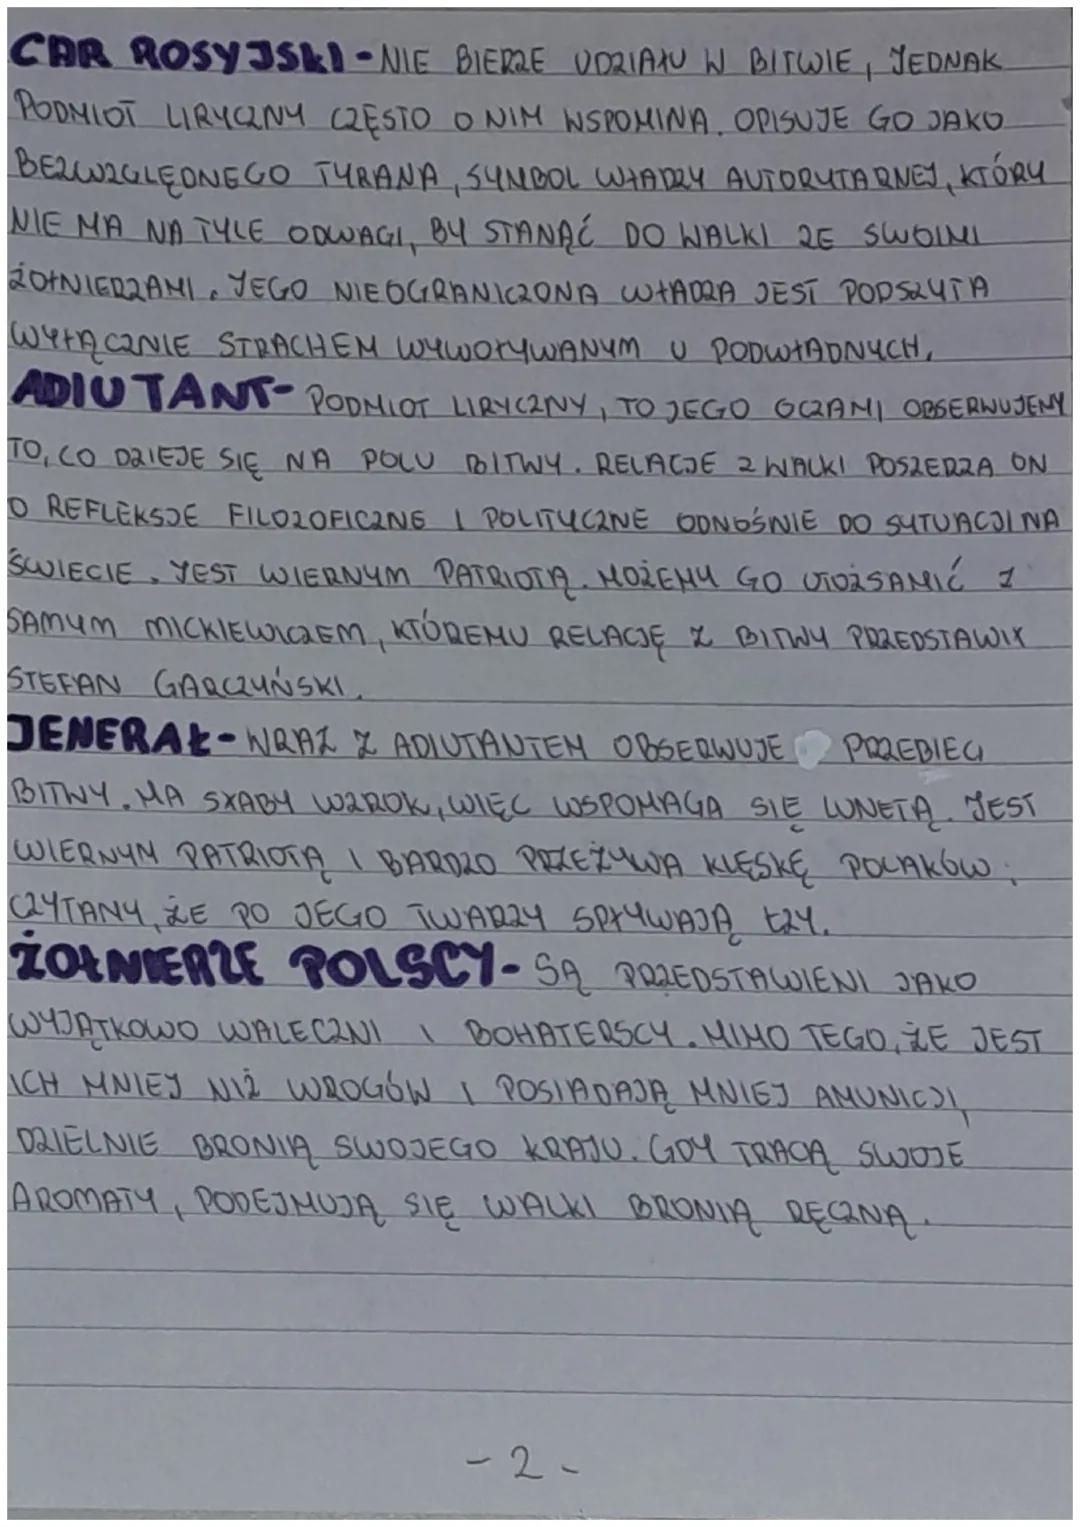 CAR ROSYJSKI - NIE BIERZE UDZIAŁU W BITWIE, JEDNAK
PODMIOT LIRYCZNY CZĘSTO O NIM WSPOMINA. OPISUJE GO JAKO
BEZWZGLĘDNEGO TYRANA, SYMBOL WŁADZY AUTORYTARNEJ, KTÓRY
NIE MA NA TYLE ODWAGI, BY STANĄĆ DO WALKI ZE SWOIMI
ŻOŁNIERZAMI. JEGO NIEOGRANICZONA WŁADZA JEST PODSZYTA
WYŁĄCZNIE STRACHEM WYWOŁYWANYM U PODWŁADNYCH.
ADIUTANT- PODMIOT LIRYCZNY, TO JEGO OCZAMI OBSERWUJEMY
TO, CO DZIEJE SIĘ NA POLU BITWY. RELACJE Z WALKI POSZERZA ON
O REFLEKSJE FILOZOFICZNE I POLITYCZNE ODNOŚNIE DO SYTUACJI NA
ŚWIECIE. JEST WIERNYM PATRIOTĄ. MOŻEMY GO UTOŻSAMIĆ Z
SAMYM MICKIEWICZEM, KTÓREMU RELACJĘ Z BITWY PRZEDSTAWIŁ
STEFAN GARCZYŃSKI.
JENERAŁ- WRAZ Z ADIUTANTEM OBSERWUJE PRZEBIEG
BITWY. MA SŁABY WZROK, WIĘC WSPOMAGA SIĘ LUNETĄ. JEST
WIERNYM PATRIOTĄ I BARDZO PRZEŻYWA KLĘSKĘ POLAKÓW;
CZYTAMY, ŻE PO JEGO TWARZY SPŁYWAJĄ ŁZY.
ŻOŁNIERZE POLSCY- SĄ PRZEDSTAWIENI JAKO
WYJĄTKOWO WALECZNI I BOHATERSCY. MIMO TEGO, ŻE JEST
ICH MNIEJ NIŻ WROGÓW I POSIADAJĄ MNIEJ AMUNICJI,
DZIELNIE BRONIĄ SWOJEGO KRAJU. GDY TRACĄ SWOJE
AROMATY, PODEJMUJĄ SIĘ WALKI BRONIĄ RĘCZNĄ.
- 2 -